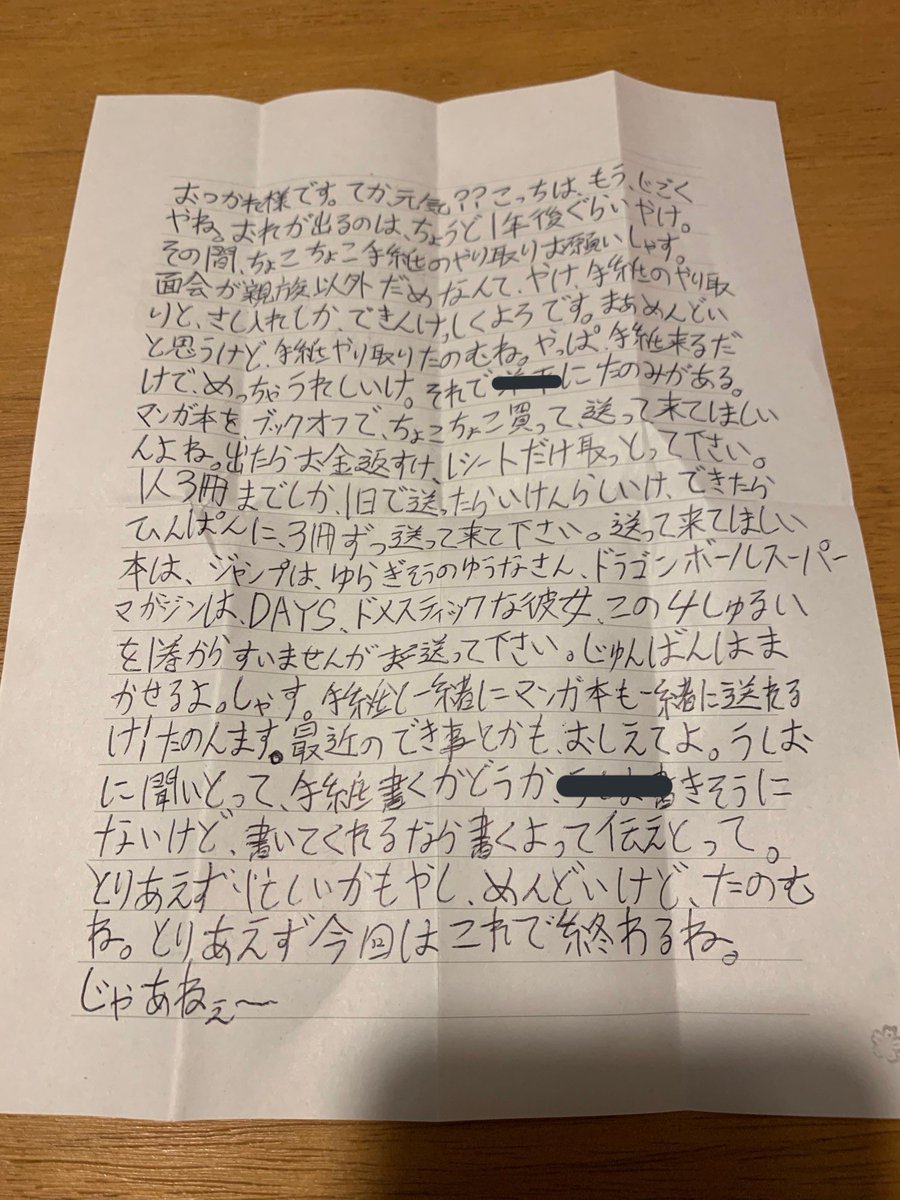 おつかれ様です。てか、元気??こっちは、もう、じごく
やね。おれが出るのは、ちょうど1年後ぐらいやけ。
その間、ちょこちょこ手紙のやり取りお願いしゃす。
面会が親族以外だめなんて、やけ、手紙のやり取
りと、さし入れしか、できんけ、しくよろです。まあめんどい
と思うけど、手紙やり取りたのむね。やっぱ、手紙来るだ
けで、めっちゃうれしいけ。それで にたのみがある。
マンガ本を、ブックオフで、ちょこちょこ買って、送って来てほしい
んよね。出たらお金返すけ、レシートだけ取っとって下さい。
1人3冊までしか、1日で送ったらいけんらしいけ、できたら
ひんぱんに、3冊ずつ送って来て下さい。送って来てほしい
本は、ジャンプは、ゆらぎそうのゆうなさん、ドラゴンボールスーパー
マガジンは、DAYS、ドメスティックな彼女、この4しゅるい
を1巻からすいませんが送って下さい。じゅんばんはま
かせるよ。しゃす。手紙と一緒にマンガ本も一緒に送れる
け!たのんます。最近のでき事とかも、おしえてよ。うしお
に聞いとって、手紙書くかどうか、書きそうに
ないけど、書いてくれるなら書くよって伝えとって。
とりあえず忙しいかもやし、めんどいけど、たのむ
ね。とりあえず今回はこれで終わるね。
じゃあねぇ〜